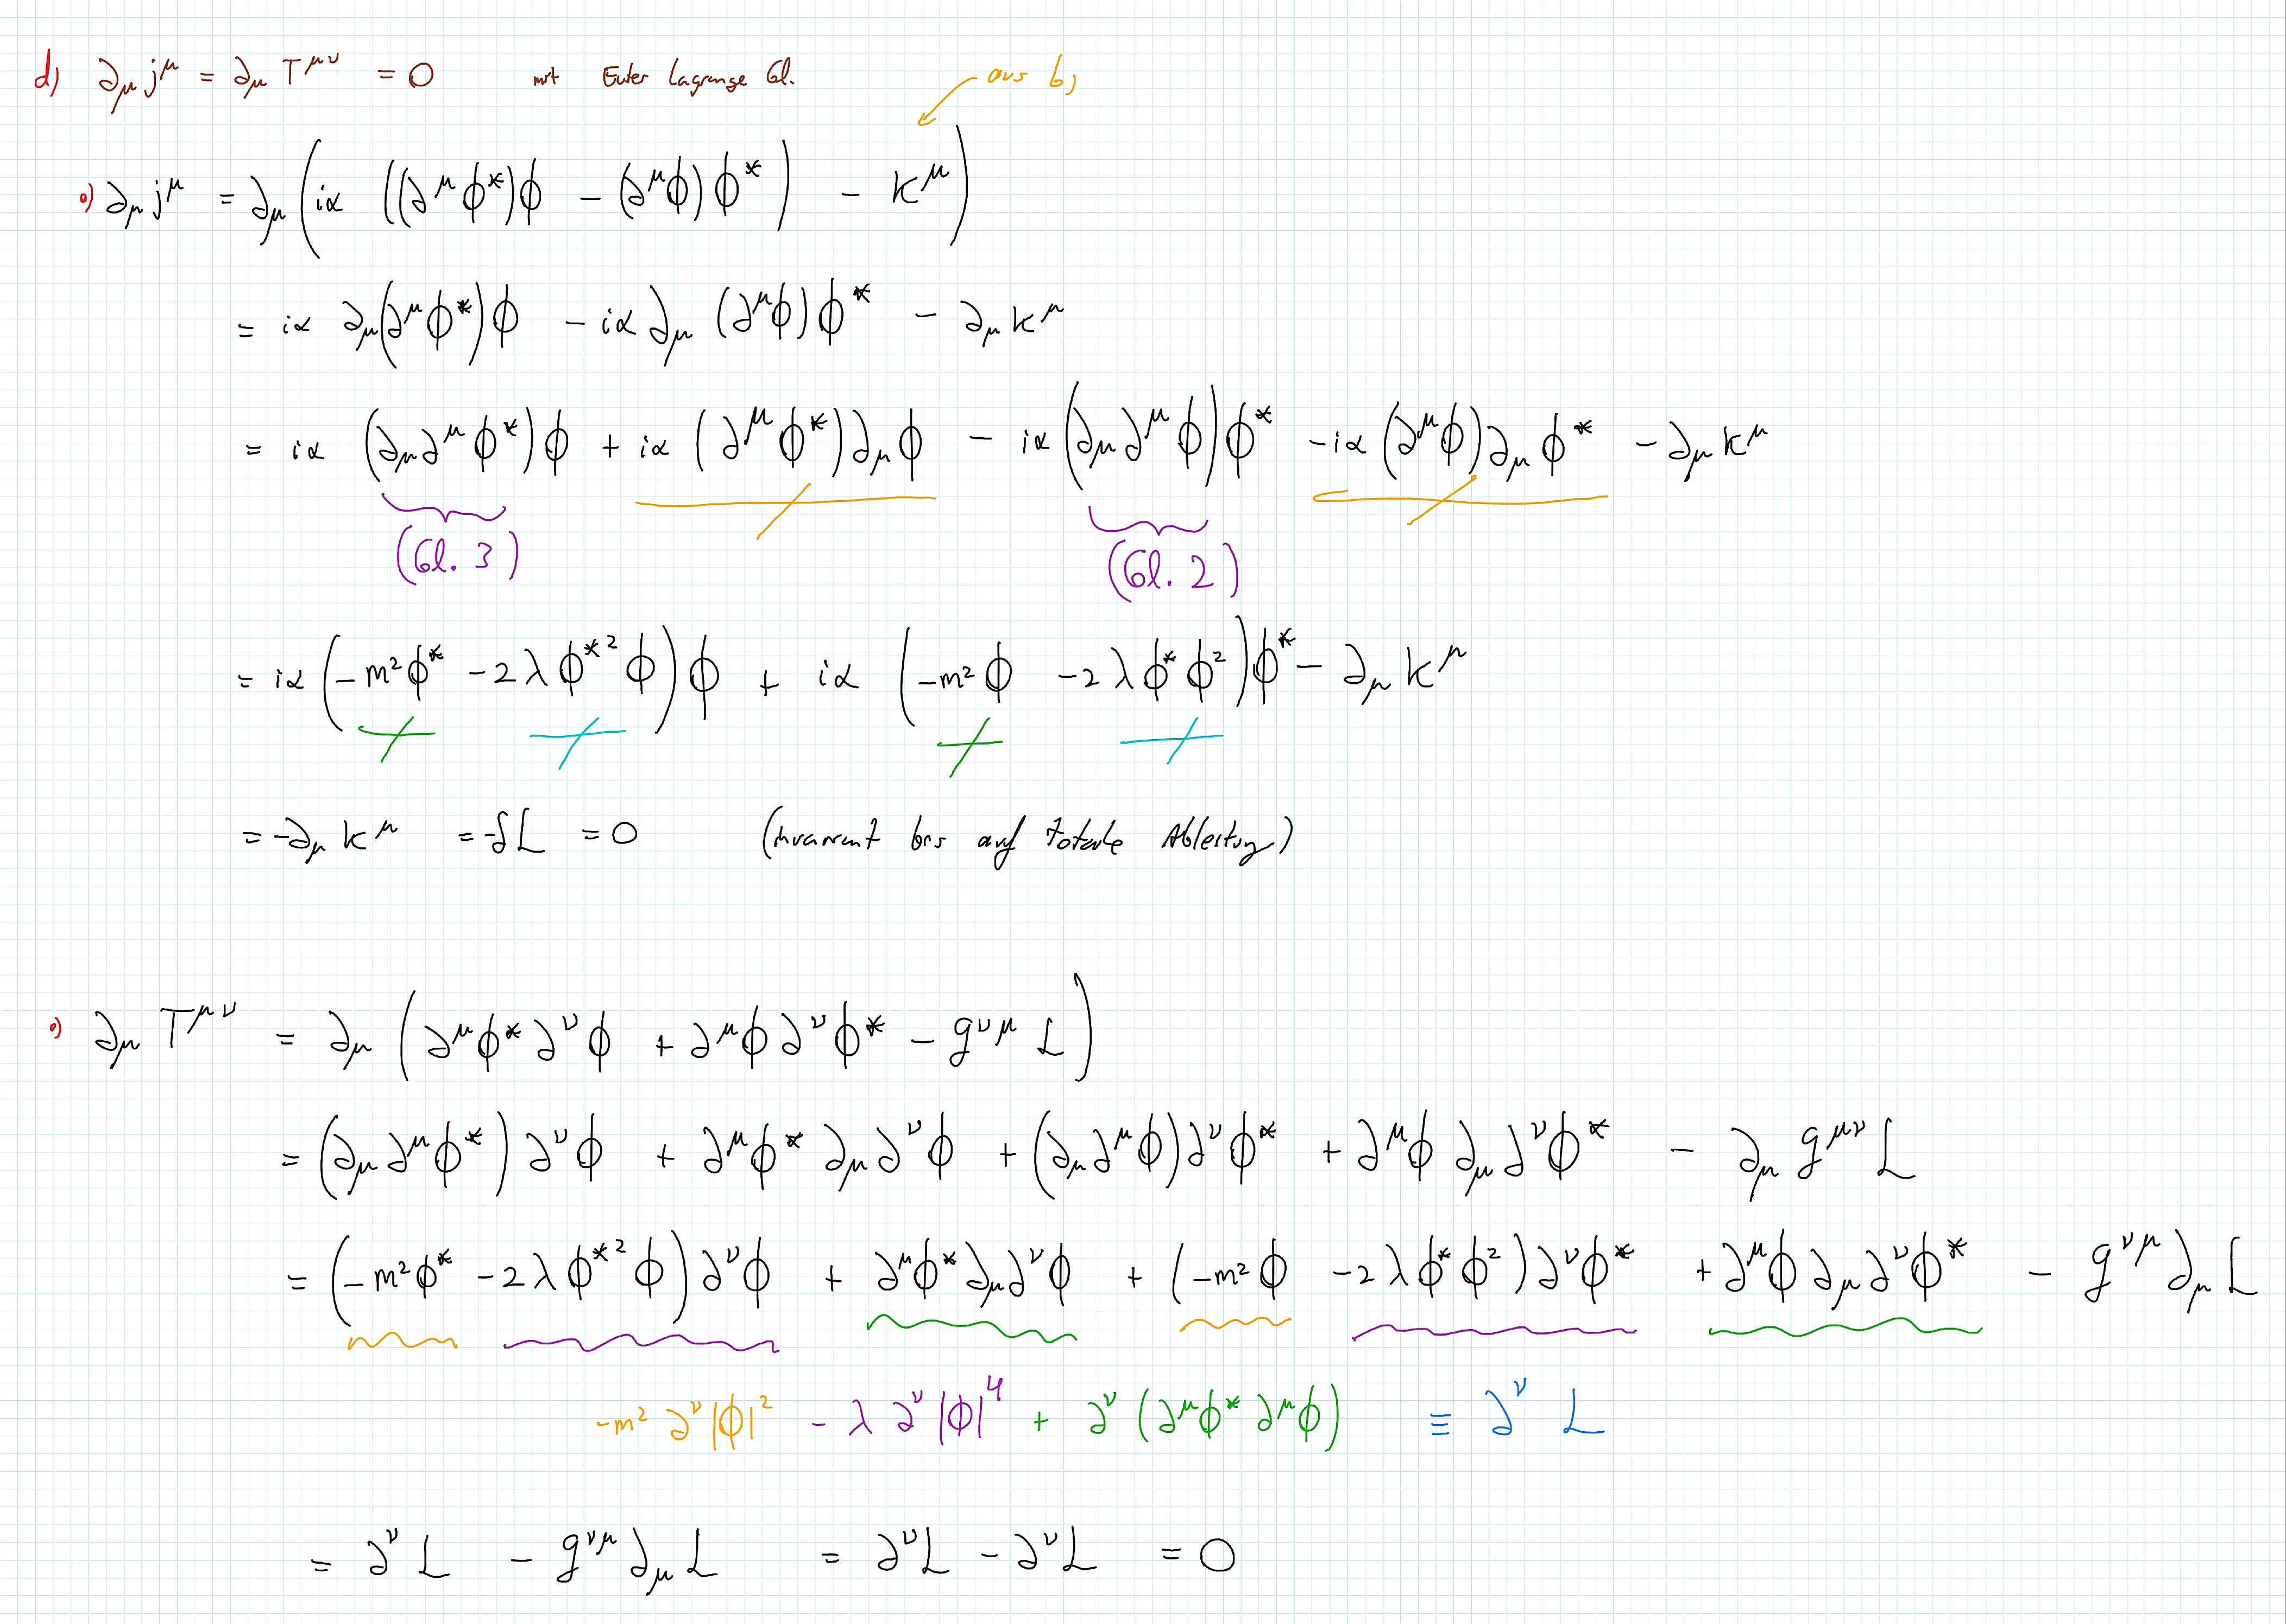 d) ∂_μ j^μ = ∂_μ T^{μν} = 0 mit Euler Lagrange Gl.
aus b)
•) ∂_μ j^μ = ∂_μ ( iα ((∂^μ ϕ*)ϕ - (∂^μ ϕ) ϕ*) - K^μ )
= iα ∂_μ(∂^μ ϕ*)ϕ - iα ∂_μ (∂^μ ϕ) ϕ* - ∂_μ K^μ
= iα (∂_μ ∂^μ ϕ*)ϕ + iα (∂^μ ϕ*)∂_μ ϕ - iα (∂_μ ∂^μ ϕ)ϕ* - iα (∂^μ ϕ)∂_μ ϕ* - ∂_μ K^μ
(Gl. 3) (Gl. 2)
= iα (-m² ϕ* - 2λ ϕ*² ϕ) ϕ + iα (-m² ϕ - 2λ ϕ* ϕ²)ϕ* - ∂_μ K^μ
= -∂_μ K^μ = -δL = 0 (invariant bis auf totale Ableitung)
•) ∂_μ T^{μν} = ∂_μ (∂^μ ϕ* ∂^ν ϕ + ∂^μ ϕ ∂^ν ϕ* - g^{νμ} L)
= (∂_μ ∂^μ ϕ*) ∂^ν ϕ + ∂^μ ϕ* ∂_μ ∂^ν ϕ + (∂_μ ∂^μ ϕ)∂^ν ϕ* + ∂^μ ϕ ∂_μ ∂^ν ϕ* - ∂_μ g^{μν} L
= (-m² ϕ* - 2λ ϕ*² ϕ) ∂^ν ϕ + ∂^μ ϕ* ∂_μ ∂^ν ϕ + (-m² ϕ - 2λ ϕ* ϕ²)∂^ν ϕ* + ∂^μ ϕ ∂_μ ∂^ν ϕ* - g^{νμ} ∂_μ L
-m² ∂^ν |ϕ|² - λ ∂^ν |ϕ|⁴ + ∂^ν (∂^μ ϕ* ∂^μ ϕ) ≡ ∂^ν L
= ∂^ν L - g^{νμ} ∂_μ L = ∂^ν L - ∂^ν L = 0